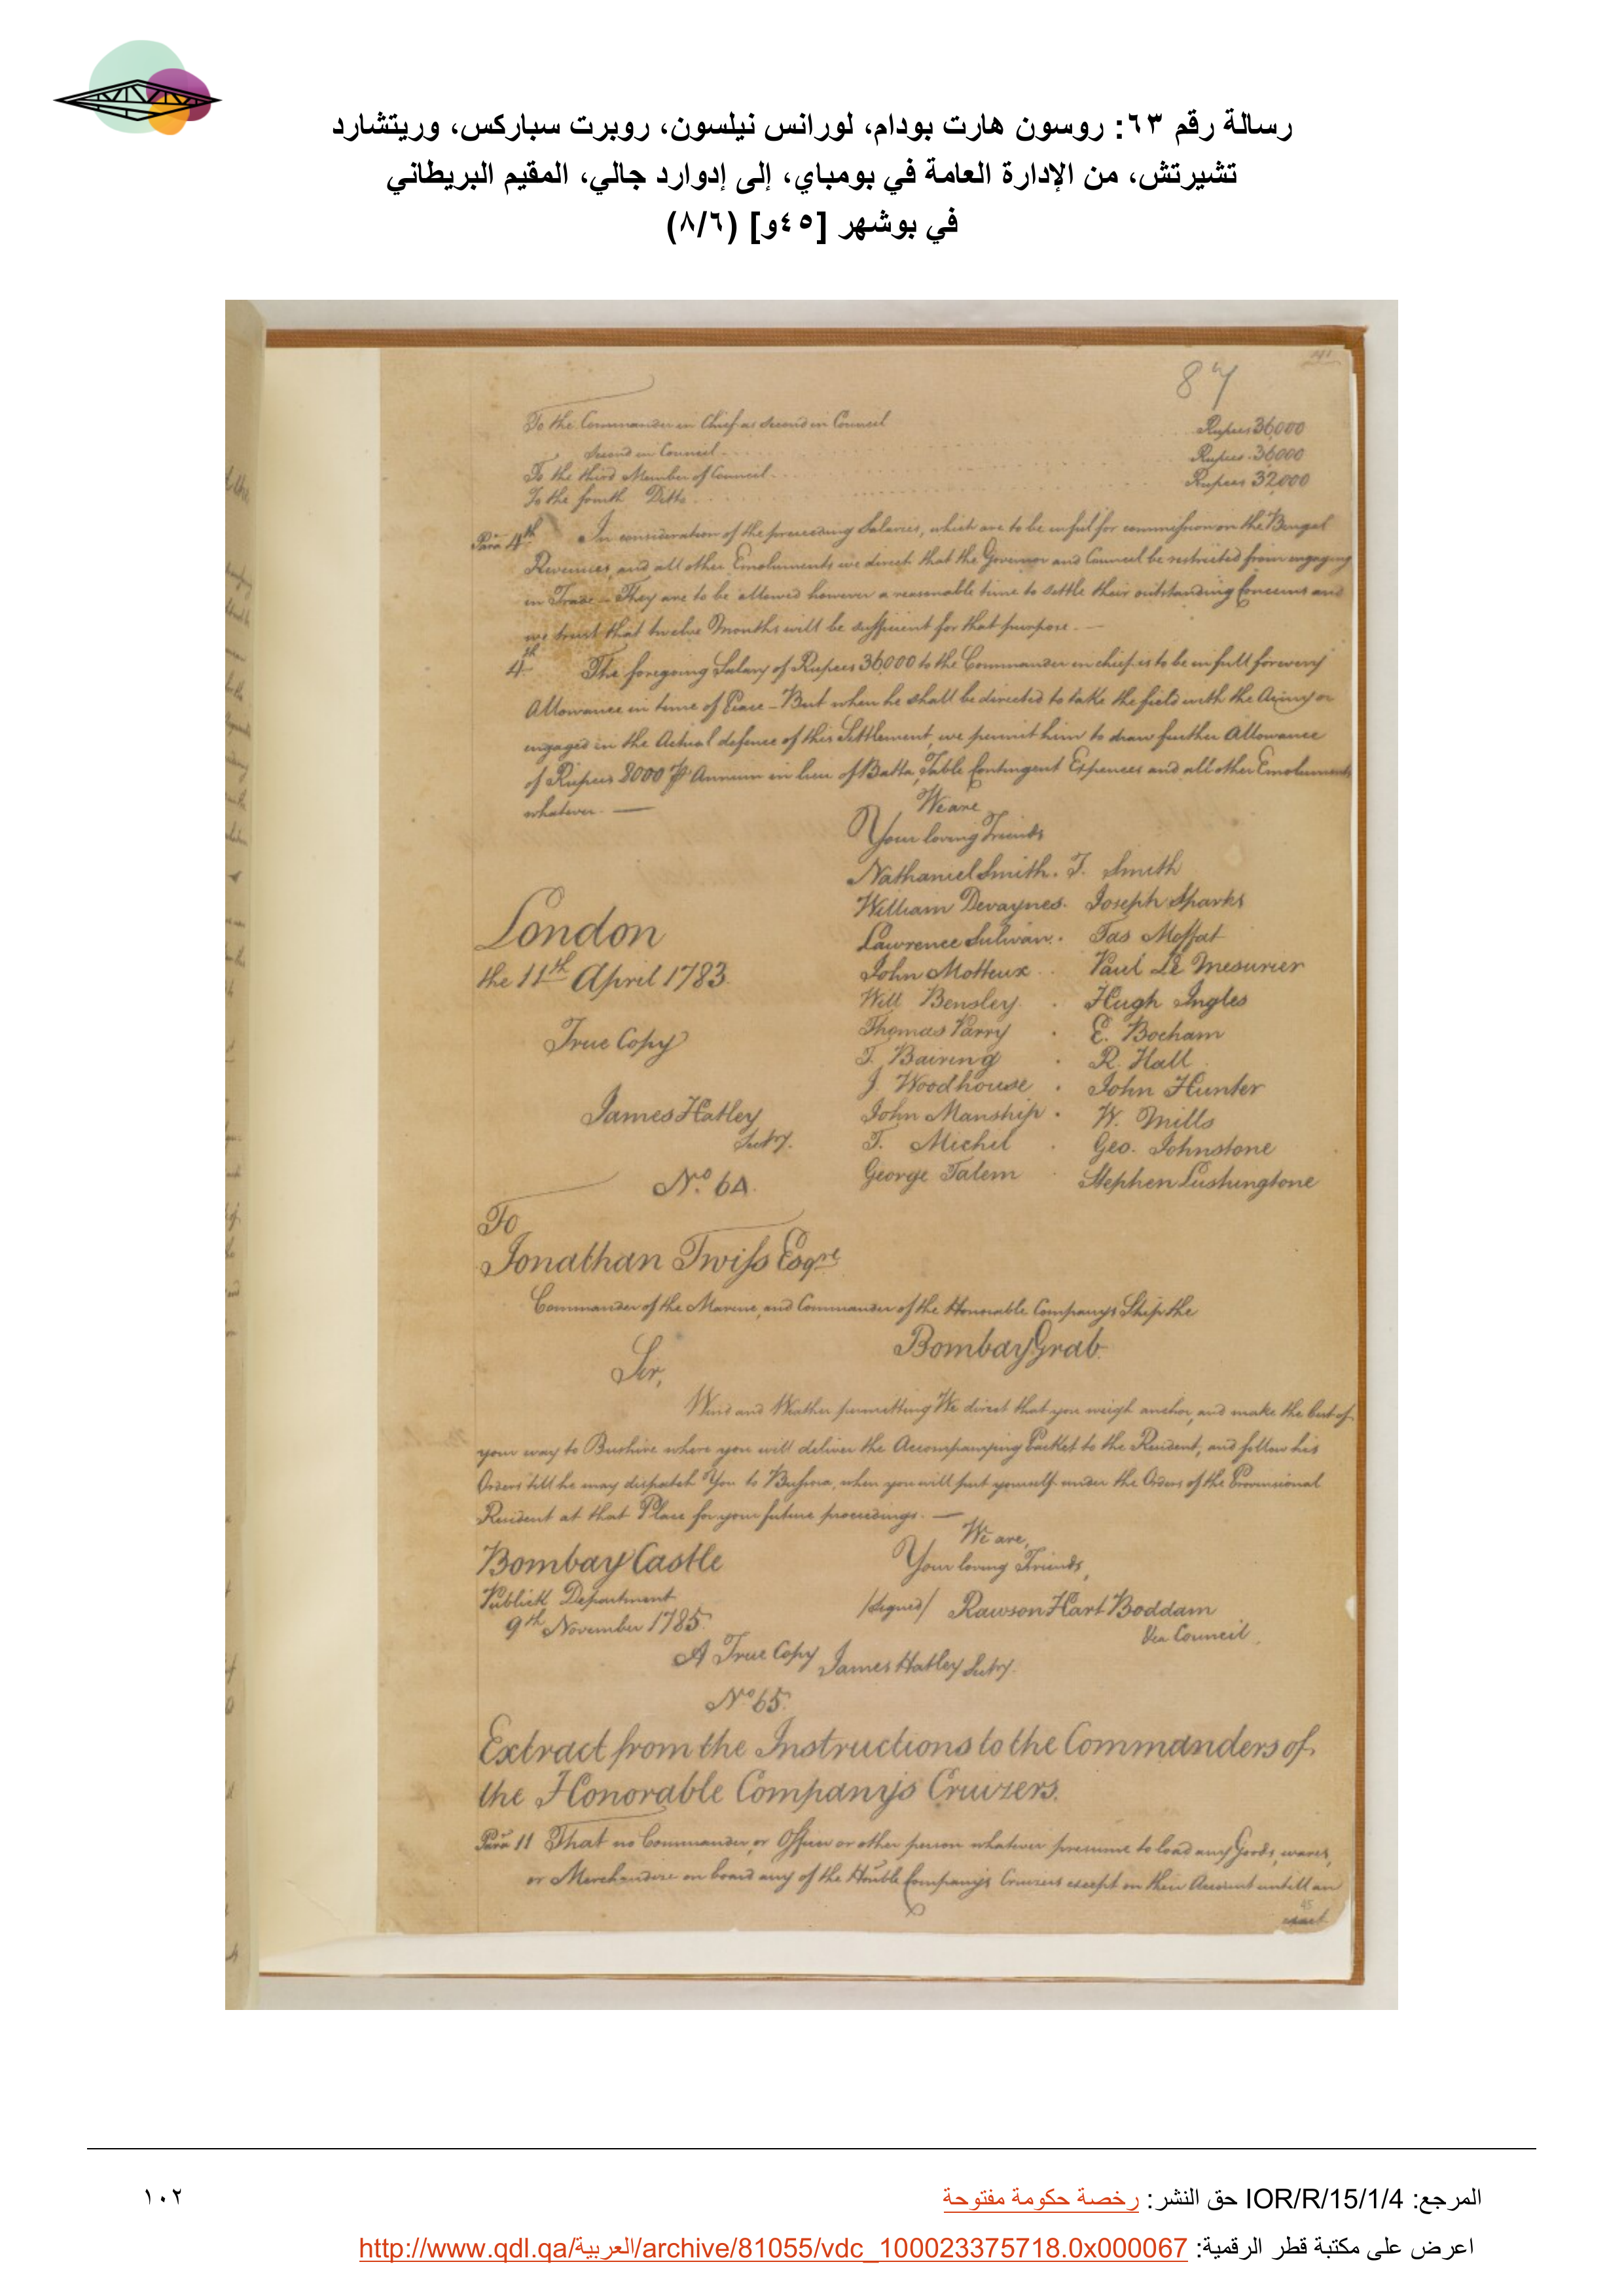 رسالة رقم ٦٣: روسون هارت بودام، لورانس نيلسون، روبرت سباركس، وريتشارد
تشيرتش، من الإدارة العامة في بومباي، إلى إدوارد جالي، المقيم البريطاني
في بوشهر [٤٥و] (٨/٦)
87
To the Commander in Chief as Second in Council Rupees 36000
Second in Council Rupees 36000
To the third Member of Council Rupees 32,000
To the fourth Ditto
Para 4th In consideration of the preceeding Salaries, which are to be in full for commission on the Bengal
Revenues, and all other Emoluments we direct that the Governor and Council be restricted from engaging
in Trade - They are to be allowed however a reasonable time to settle their outstanding Concerns and
we trust that twelve Months will be sufficient for that purpose. —
4th The foregoing Salary of Rupees 36000 to the Commander in chief is to be in full for every
Allowance in time of Peace - But when he shall be directed to take the field with the Army or
engaged in the Actual defence of this Settlement, we permit him to draw further Allowance
of Rupees 8000 P Annum in lieu of Batta, Table Contingent Expences and all other Emoluments
whatever. —
We are
Your loving Friends
Nathaniel Smith. T. Smith
William Devaynes. Joseph Sparks
London
Lawrence Sulivan. Jas Moffat
the 11th April 1783.
John Motteux Paul Le Mesurier
Will Bensley. Hugh Ingles
True Copy
Thomas Parry E. Bocham
T. Bairing R. Hall
J. Woodhouse John Hunter
James Hatley
John Manship. W. Mills
Secty.
T. Michel Geo. Johnstone
George Tatem Stephen Lushingtone
No. 64.
To
Jonathan Twiss Esqre
Commander of the Marine, and Commander of the Honorable Company's Ship the
Bombay Grab.
Sir,
Wind and Weather permitting We direct that you weigh anchor, and make the best of
your way to Bushire where you will deliver the Accompanying Packet to the Resident, and follow his
Orders till he may dispatch You to Bussora, when you will put yourself under the Orders of the Provisional
Resident at that Place for your future proceedings. —
We are,
Bombay Castle
Your loving Friends,
Publick Department
/signed/ Rawson Hart Boddam
9th November 1785.
Council.
A True Copy James Hatley Secty.
No 65.
Extract from the Instructions to the Commanders of
the Honorable Company's Cruizers.
Para 11 That no Commander, or Officer or other person whatever presume to load any Goods, wares,
or Merchandize on board any of the Honble Company's Cruizers except on their Account untill an
45
المرجع: IOR/R/15/1/4 حق النشر: رخصة حكومة مفتوحة
١٠٢
اعرض على مكتبة قطر الرقمية: http://www.qdl.qa/العربية/archive/81055/vdc_100023375718.0x000067